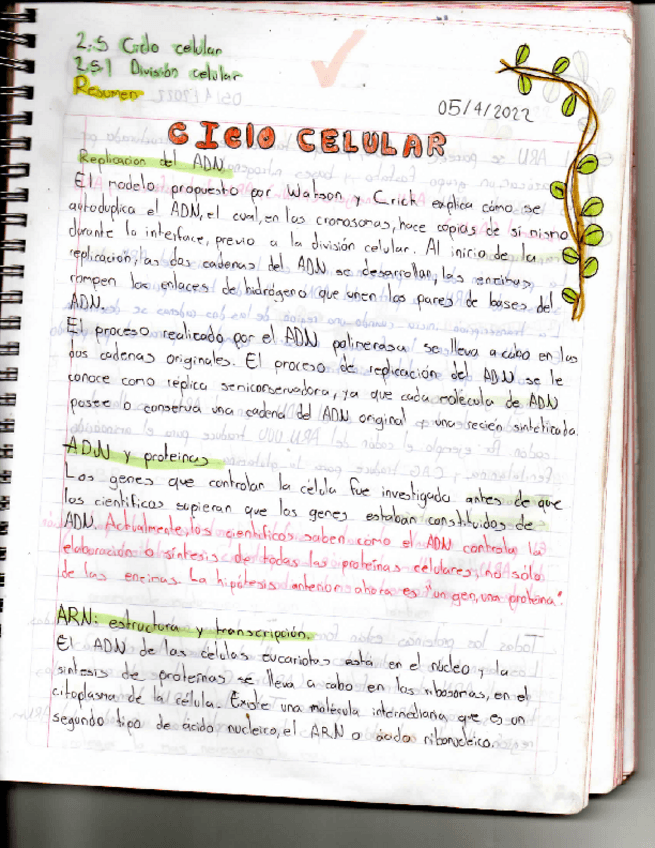 2.5 Ciclo celular
2.5.1 División celular
Resumen
05/4/2022
CIclo CELULAR
Replicacion del ADN
El modelo propuesto por Watson y Crick explica cómo se
autoduplica el ADN, el cual, en las cromosomas, hace copias de si mismo
durante la interface, previo a la división celular. Al inicio de la
replicación, las dos cadenas del ADN se desarrollan, las encimas
rompen los enlaces de hidrógeno que unen los pares de bases del
ADN.
El proceso realizado por el ADN polimerasa se lleva a cabo en las
dos cadenas originales. El proceso de replicación del ADN se le
conoce como réplica semiconservadora, ya que cada molécula de ADN
posee o conserva una cadena del ADN original + una recién sintetizada.
ADN y proteinas
Los genes que controlan la célula fue investigada antes de que
los cientificos supieran que los genes estaban constituidos de
ADN. Actualmente, los cientificos saben cómo el ADN controla la
elaboración o síntesis de todas las proteínas celulares, no sólo
de las encimas. La hipótesis anterior ahora es "un gen, una proteina".
ARN: estructura y transcripción.
El ADN de las células eucariotas está en el núcleo y la
sintesis de proteinas se lleva a cabo en las ribosomas, en el
citoplasma de la célula. Existe una molécula intermediaria que es un
segundo tipo de ácido nucleico, el ARN o ácido ribonucleico.